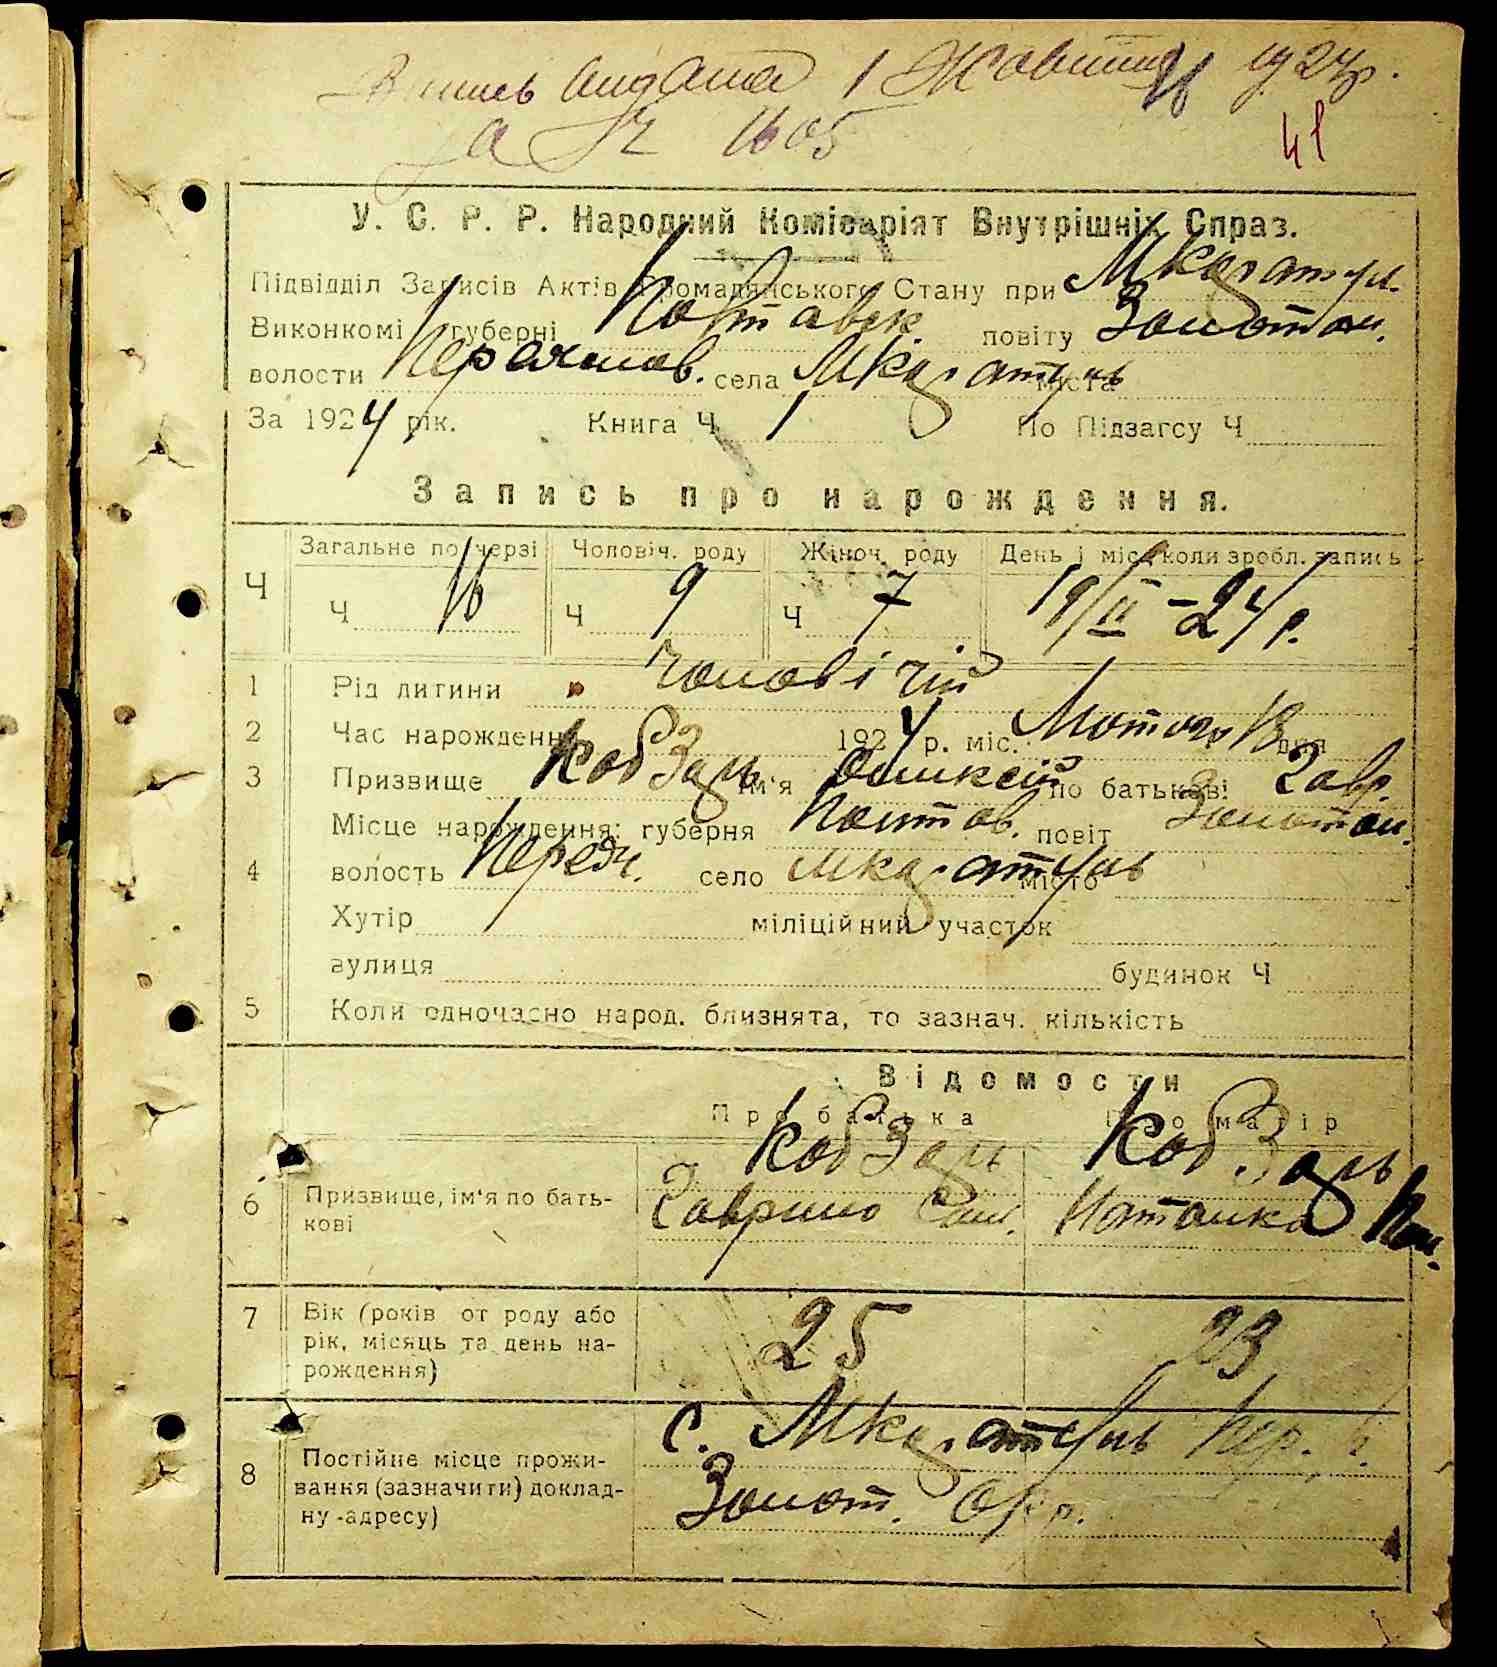 Випись видана 1 Жовтня 1924р.
за Ч 1605
41
У. С. Р. Р. Народний Комісаріят Внутрішніх Справ.
Підвідділ Записів Актів Громадянського Стану при
Виконкомі губерні Полтавск. повіту Золотон.
волости села міста
За 1924 рік. Книга Ч 1 По Підзагсу Ч
Запись про нарождення.
Загальне по черзі Чоловіч. роду Жіноч. роду День і міс. коли зробл. запись
Ч Ч 16 Ч 9 Ч 7 19/II-24р.
1 Рід дитини чоловічій
2 Час нарождення 1924 р. міс. Лютого 18 дня
3 Призвище Кобзарь ім'я Оликсій по батькові Гавр.
Місце нарождення: губерня Полтав. повіт Золотон.
4 волость село місто
Хутір міліційний участок
вулиця будинок Ч
5 Коли одночасно народ. близнята, то зазнач. кількість
Відомости
Про батька Про матір
Кобзарь Кобзарь
6 Призвище, ім'я по бать- Гаврило Наталка
кові
7 Вік (років от роду або 25 23
рік, місяць та день на-
рождення)
с.
8 Постійне місце прожи-
вання (зазначити) доклад- Золот. Окр.
ну адресу)